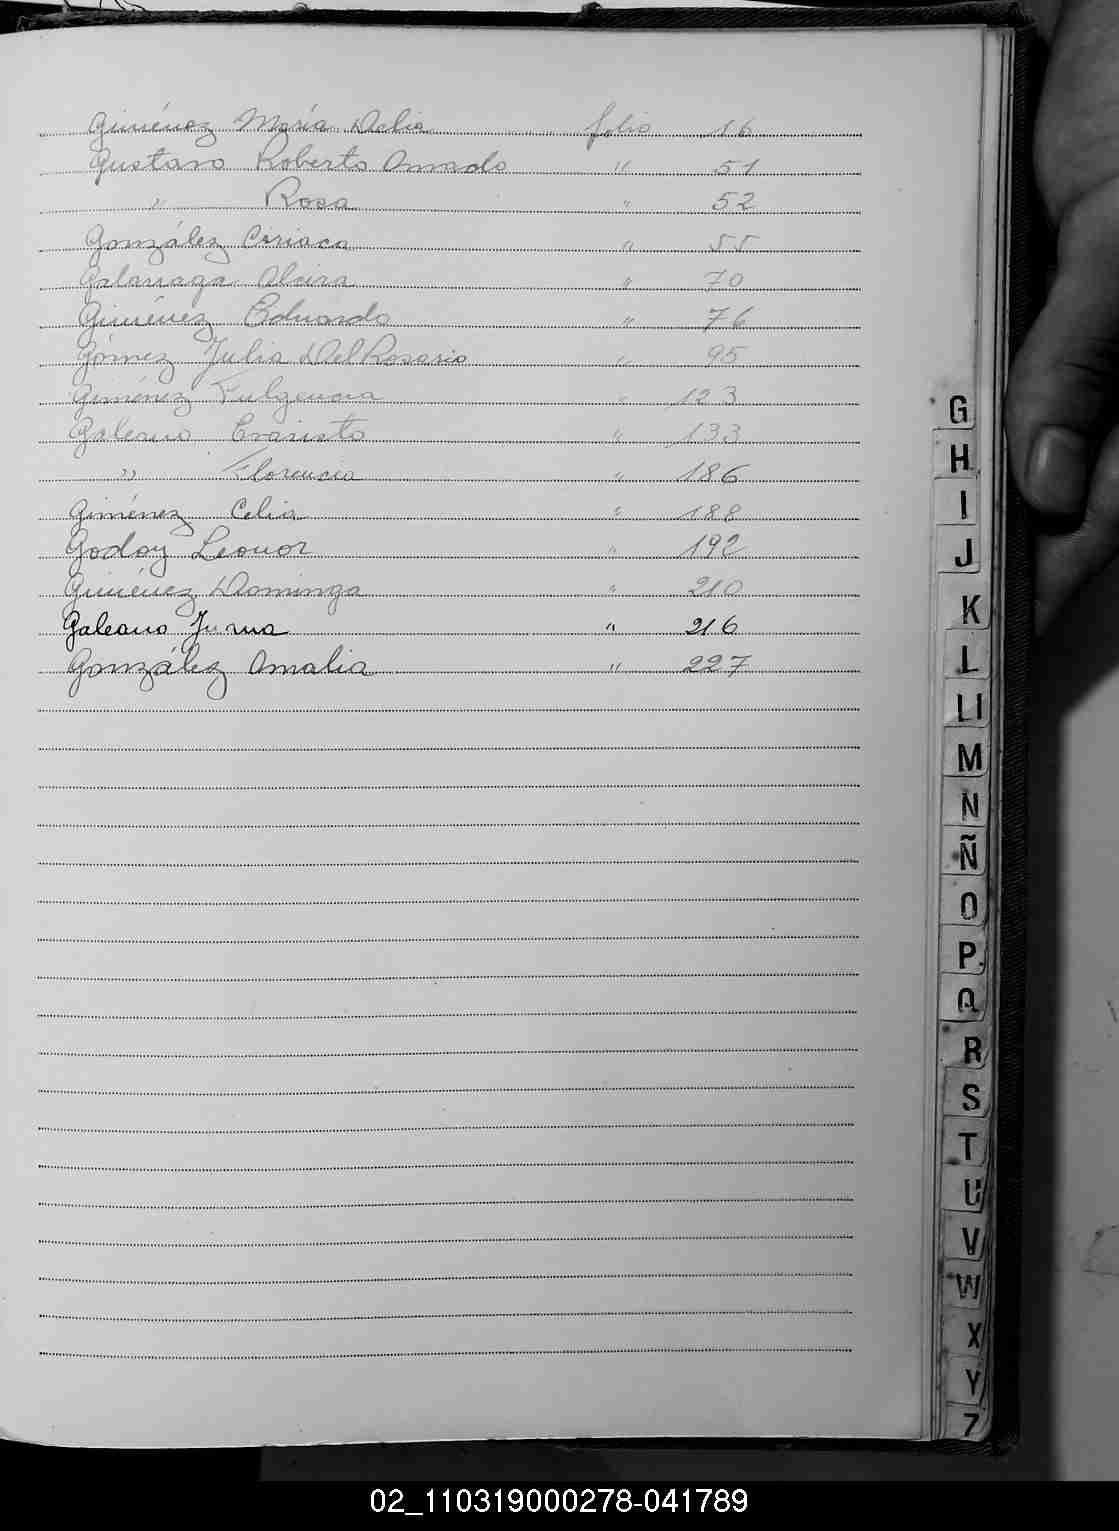 Giménez María Delia folio 16
Gustavo Roberto Amado " 51
" Rosa " 52
González Ciriaca " 55
Galarraga Alcira " 70
Giménez Eduardo " 76
Gómez Julia Del Rosario " 95
Giménez Fulgencia " 123
Galeano Evaristo " 133
" Florencia " 186
Giménez Celia " 188
Godoy Leonor " 192
Giménez Dominga " 210
Galeano " 216
González Amalia " 227
G
H
I
J
K
L
Ll
M
N
Ñ
O
P
Q
R
S
T
U
V
W
X
Y
Z
02_110319000278-041789